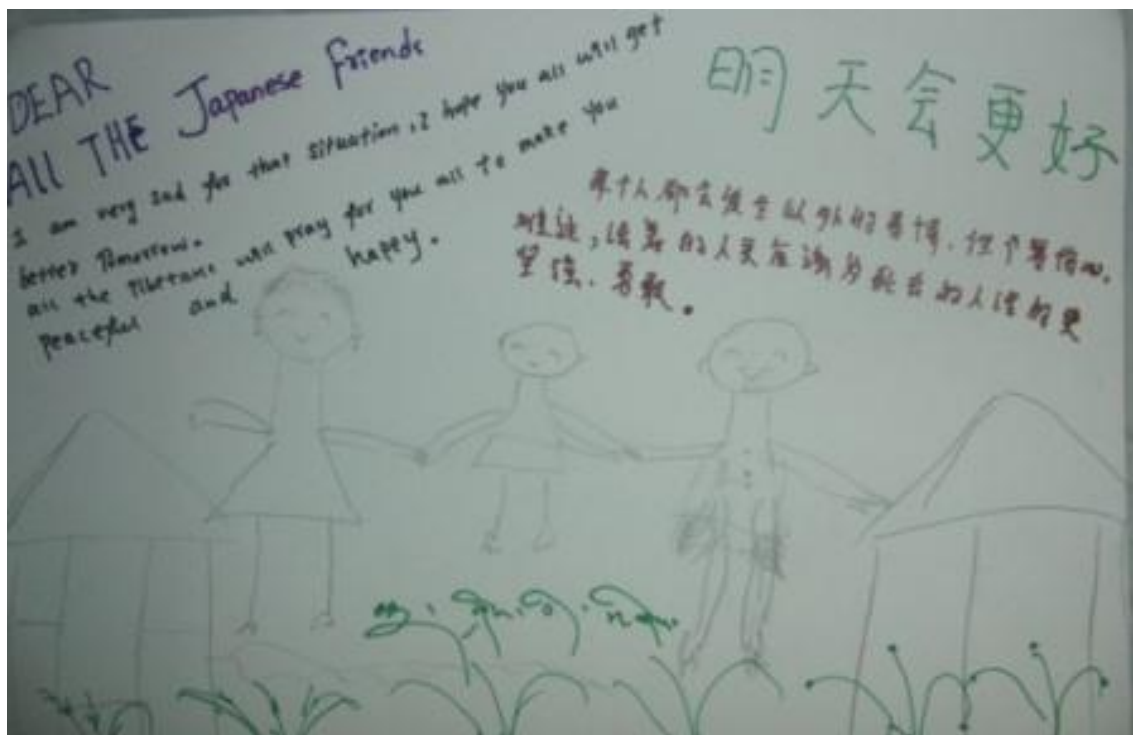 DEAR
All THE Japanese friends
I am very sad for that situation, I hope you all will get
better Tomorrow.
all the Tibetans will pray for you all to make you
peaceful and happy.
明天会更好
每个人都会发生以外的事情,
难过,活着的人更应该为死去的人活的更
坚强、勇敢。